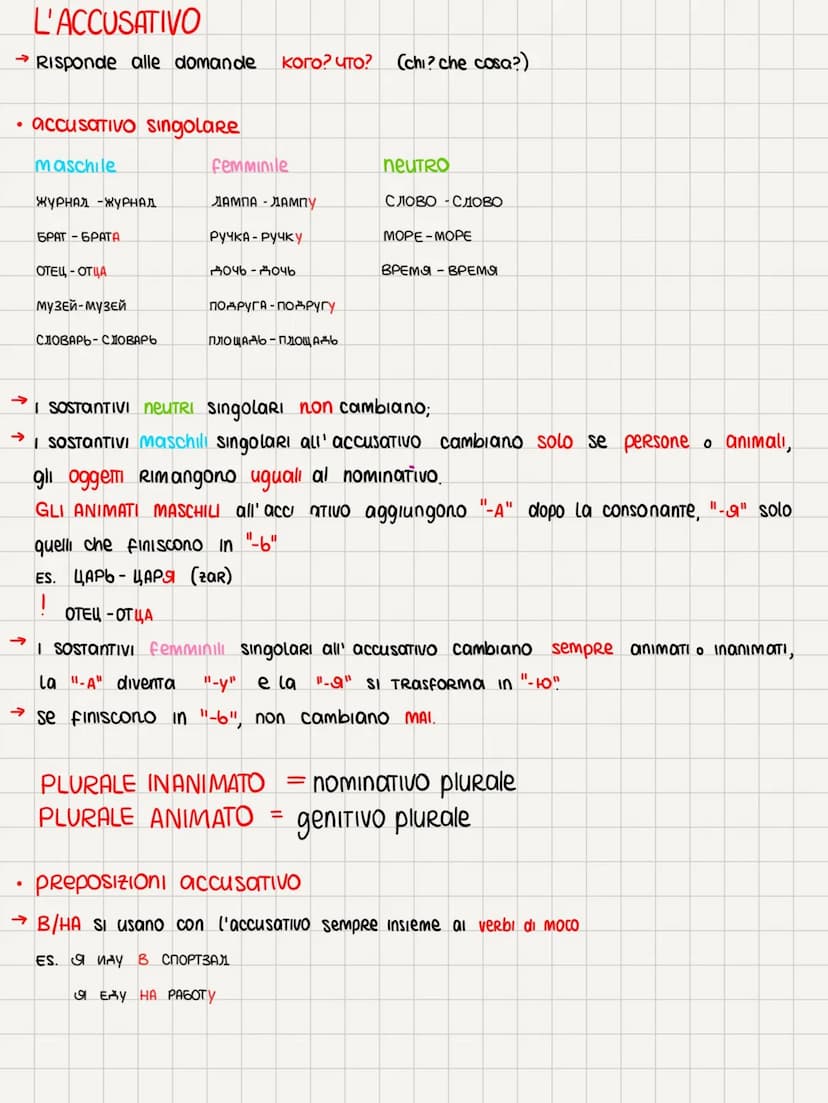 L'ACCUSATIVO
→ Risponde alle domande кого? что? (chi? che cosa?)
• accusativo singolare
maschile femminile neutro
ЖУРНАЛ - ЖУРНАЛ ЛАМПА - ЛАМПУ СЛОВО - СЛОВО
БРАТ - БРАТА РУЧКА - РУЧКУ МОРЕ - МОРЕ
ОТЕЦ - ОТЦА ДОЧЬ - ДОЧЬ ВРЕМЯ - ВРЕМЯ
МУЗЕЙ - МУЗЕЙ ПОДРУГА - ПОДРУГУ
СЛОВАРЬ - СЛОВАРЬ ПЛОЩАДЬ - ПЛОЩАДЬ
→ I sostantivi neutri singolari non cambiano;
→ I sostantivi maschili singolari all'accusativo cambiano solo se persone o animali,
gli oggetti rimangono uguali al nominativo.
GLI ANIMATI MASCHILI all'acc ativo aggiungono "-А" dopo la consonante, "-Я" solo
quelli che finiscono in "-Ь"
ES. ЦАРЬ - ЦАРЯ (zar)
! ОТЕЦ - ОТЦА
→ I sostantivi femminili singolari all'accusativo cambiano sempre animati o inanimati,
la "-А" diventa "-У" e la "-Я" si trasforma in "-Ю".
→ se finiscono in "-Ь", non cambiano MAI.
PLURALE INANIMATO = nominativo plurale
PLURALE ANIMATO = genitivo plurale
• preposizioni accusativo
→ В/НА si usano con l'accusativo sempre insieme ai verbi di moto
ES. Я ИДУ В СПОРТЗАЛ
Я ЕДУ НА РАБОТУ